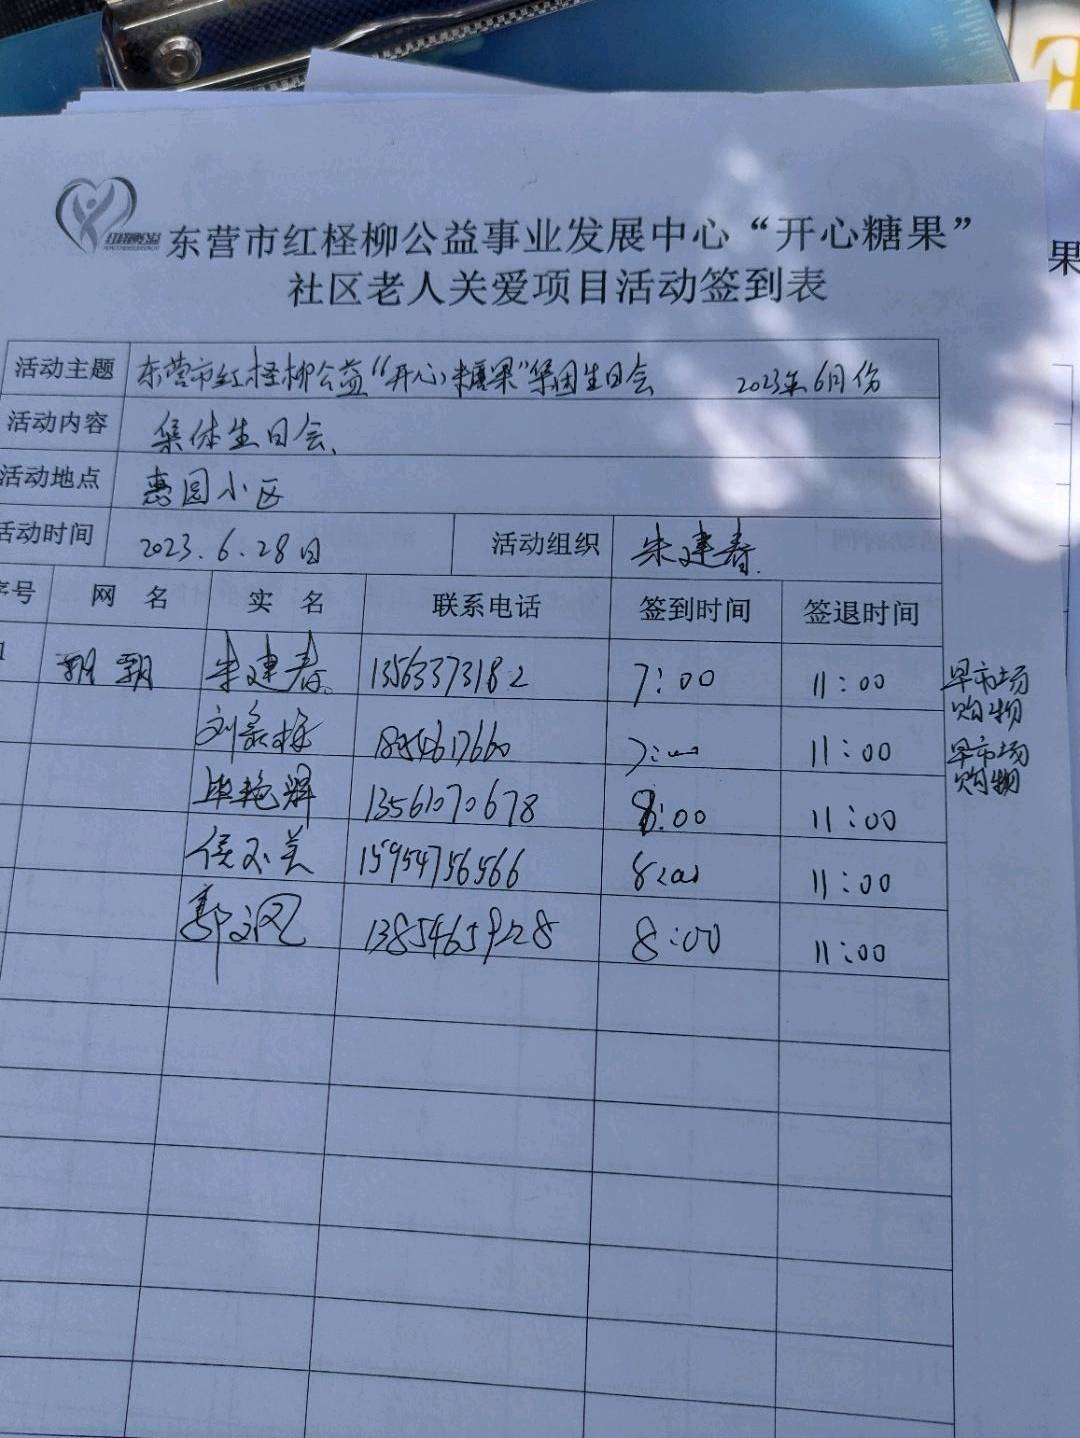 东营市红柽柳公益事业发展中心“开心糖果”
社区老人关爱项目活动签到表
果
活动主题 东营市红柽柳公益“开心糖果”集团生日会 2023年6月份
活动内容 集体生日会、
活动地点 惠园小区
活动时间 2023.6.28日 活动组织 朱建春
序号 网 名 实 名 联系电话 签到时间 签退时间
1 朱建春 13563373182 7:00 11:00 早市场
购物
刘 7:00 11:00 早市场
购物
毕艳辉 13561070678 8:00 11:00
侯 15954756566 8:00 11:00
郭 8:00 11:00